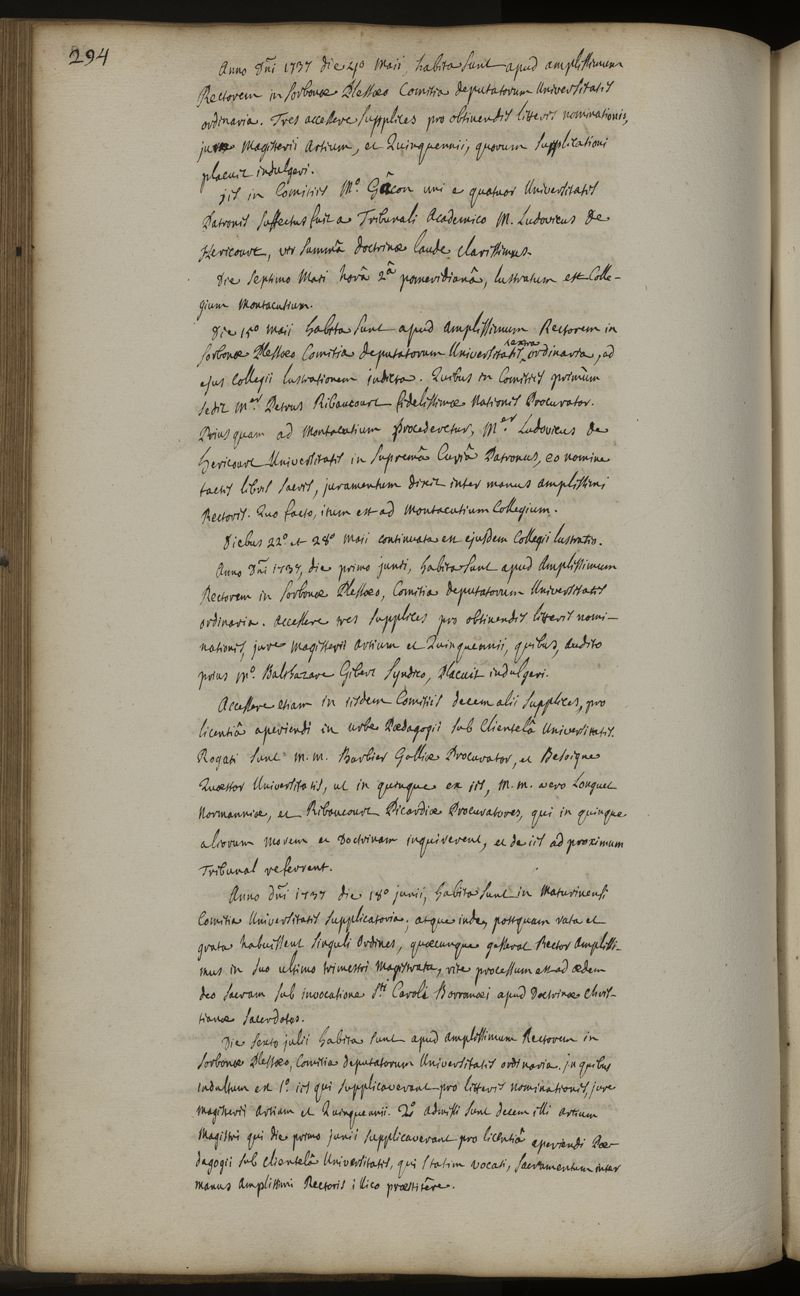 294
Anno Dñi 1737 die 4º Maii, habita sunt apud amplissimum
Rectorem in Sorbonæ Plessæo Comitia deputatorum Universitatis
ordinaria. Tres accessere supplices pro obtinendis litteris nominationis,
jure Magisterii Artium, et Quinquennii, quorum supplicationi
placuit indulgeri.
jis in Comitiis Mº. Gacon uni e quatuor Universitatis
Patronis suffectus fuit a Tribunali Academico M. Ludovicus De
Hericourt, vir summâ doctrinæ laude clarissimus.
Die septimo Maii horâ 2â pomeridianâ, lustratum est Colle-
gium Montacutium.
Die 15º maii habita sunt apud Amplissimum Rectorem in
Sorbonæ Plessæo Comitia deputatorum Universitatis extra ordinaria, ad
ejus Collegii lustrationem indicta. Quibus in Comitiis primùm
sedit Mer. Petrus Ribaucourt fidelissimæ Nationis Procurator.
Priusquam ad Montacutium procederetur, Mer. Ludovicus de
Hericourt Universitatis in supremâ Curiâ Patronus, eo nomine
tactis libris sacris, juramentum dixit inter manus amplissimi
Rectoris. Quo facto, itum est ad Montacutium Collegium.
Diebus 22º et 28º maii continuata est ejusdem Collegii lustratio.
Anno Dñi 1737, die primo junii, habita sunt apud Amplissimum
Rectorem in Sorbonæ Plessæo, Comitia deputatorum Universitatis
ordinaria. Accessere tres supplices pro obtinendis litteris nomi-
nationis, jure Magisterii Artium et Quinquennii, quibus, audito
prius Mº. Balthazare Gibert Syndico, placuit indulgeri.
Accessere etiam in iisdem Comitiis decem alii supplices, pro
licentiâ aperiendi in urbe Pædagogii sub Clientelâ Universitatis.
Rogati sunt M.M. Barbier Galliæ Procurator, et Besoigne
Quæstor Universitatis, ut in quinque ex iis, M.M. vero Longuet
Normanniæ, et Ribaucourt Picardiæ Procuratores, qui in quinque
aliorum morem et Doctrinam inquirerent, et de iis ad proximum
Tribunal referrent.
Anno Dñi 1737 die 18º junii, habita sunt in Maturinensi
Comitia Universitatis supplicatoria; atque inde, postquam rata et
grata habuissent singuli Ordines, quæcunque gesserat Rector Amplissi-
mus in suo ultimo trimestri Magistratu, rite processum est ad ædem
deo sacram sub invocatione Sti Caroli Borromæi apud Doctrinæ Chris-
tianæ Sacerdotes.
Die sexto julii habita sunt apud Amplissimum Rectorem in
Sorbonæ Plessæo, Comitia deputatorum Universitatis ordinaria. in quibus
indultum est 1º. iis qui supplicaverant pro litteris nominationis, jure
magisterii artium et Quinquennii. 2º admissi sunt decem illi artium
Magistri qui die primo junii supplicaverant pro licentiâ aperiendi Pæ-
dagogii sub clientelâ Universitatis, qui statim vocati, sacramentum inter
manus Amplissimi Rectoris illico præstitêre.